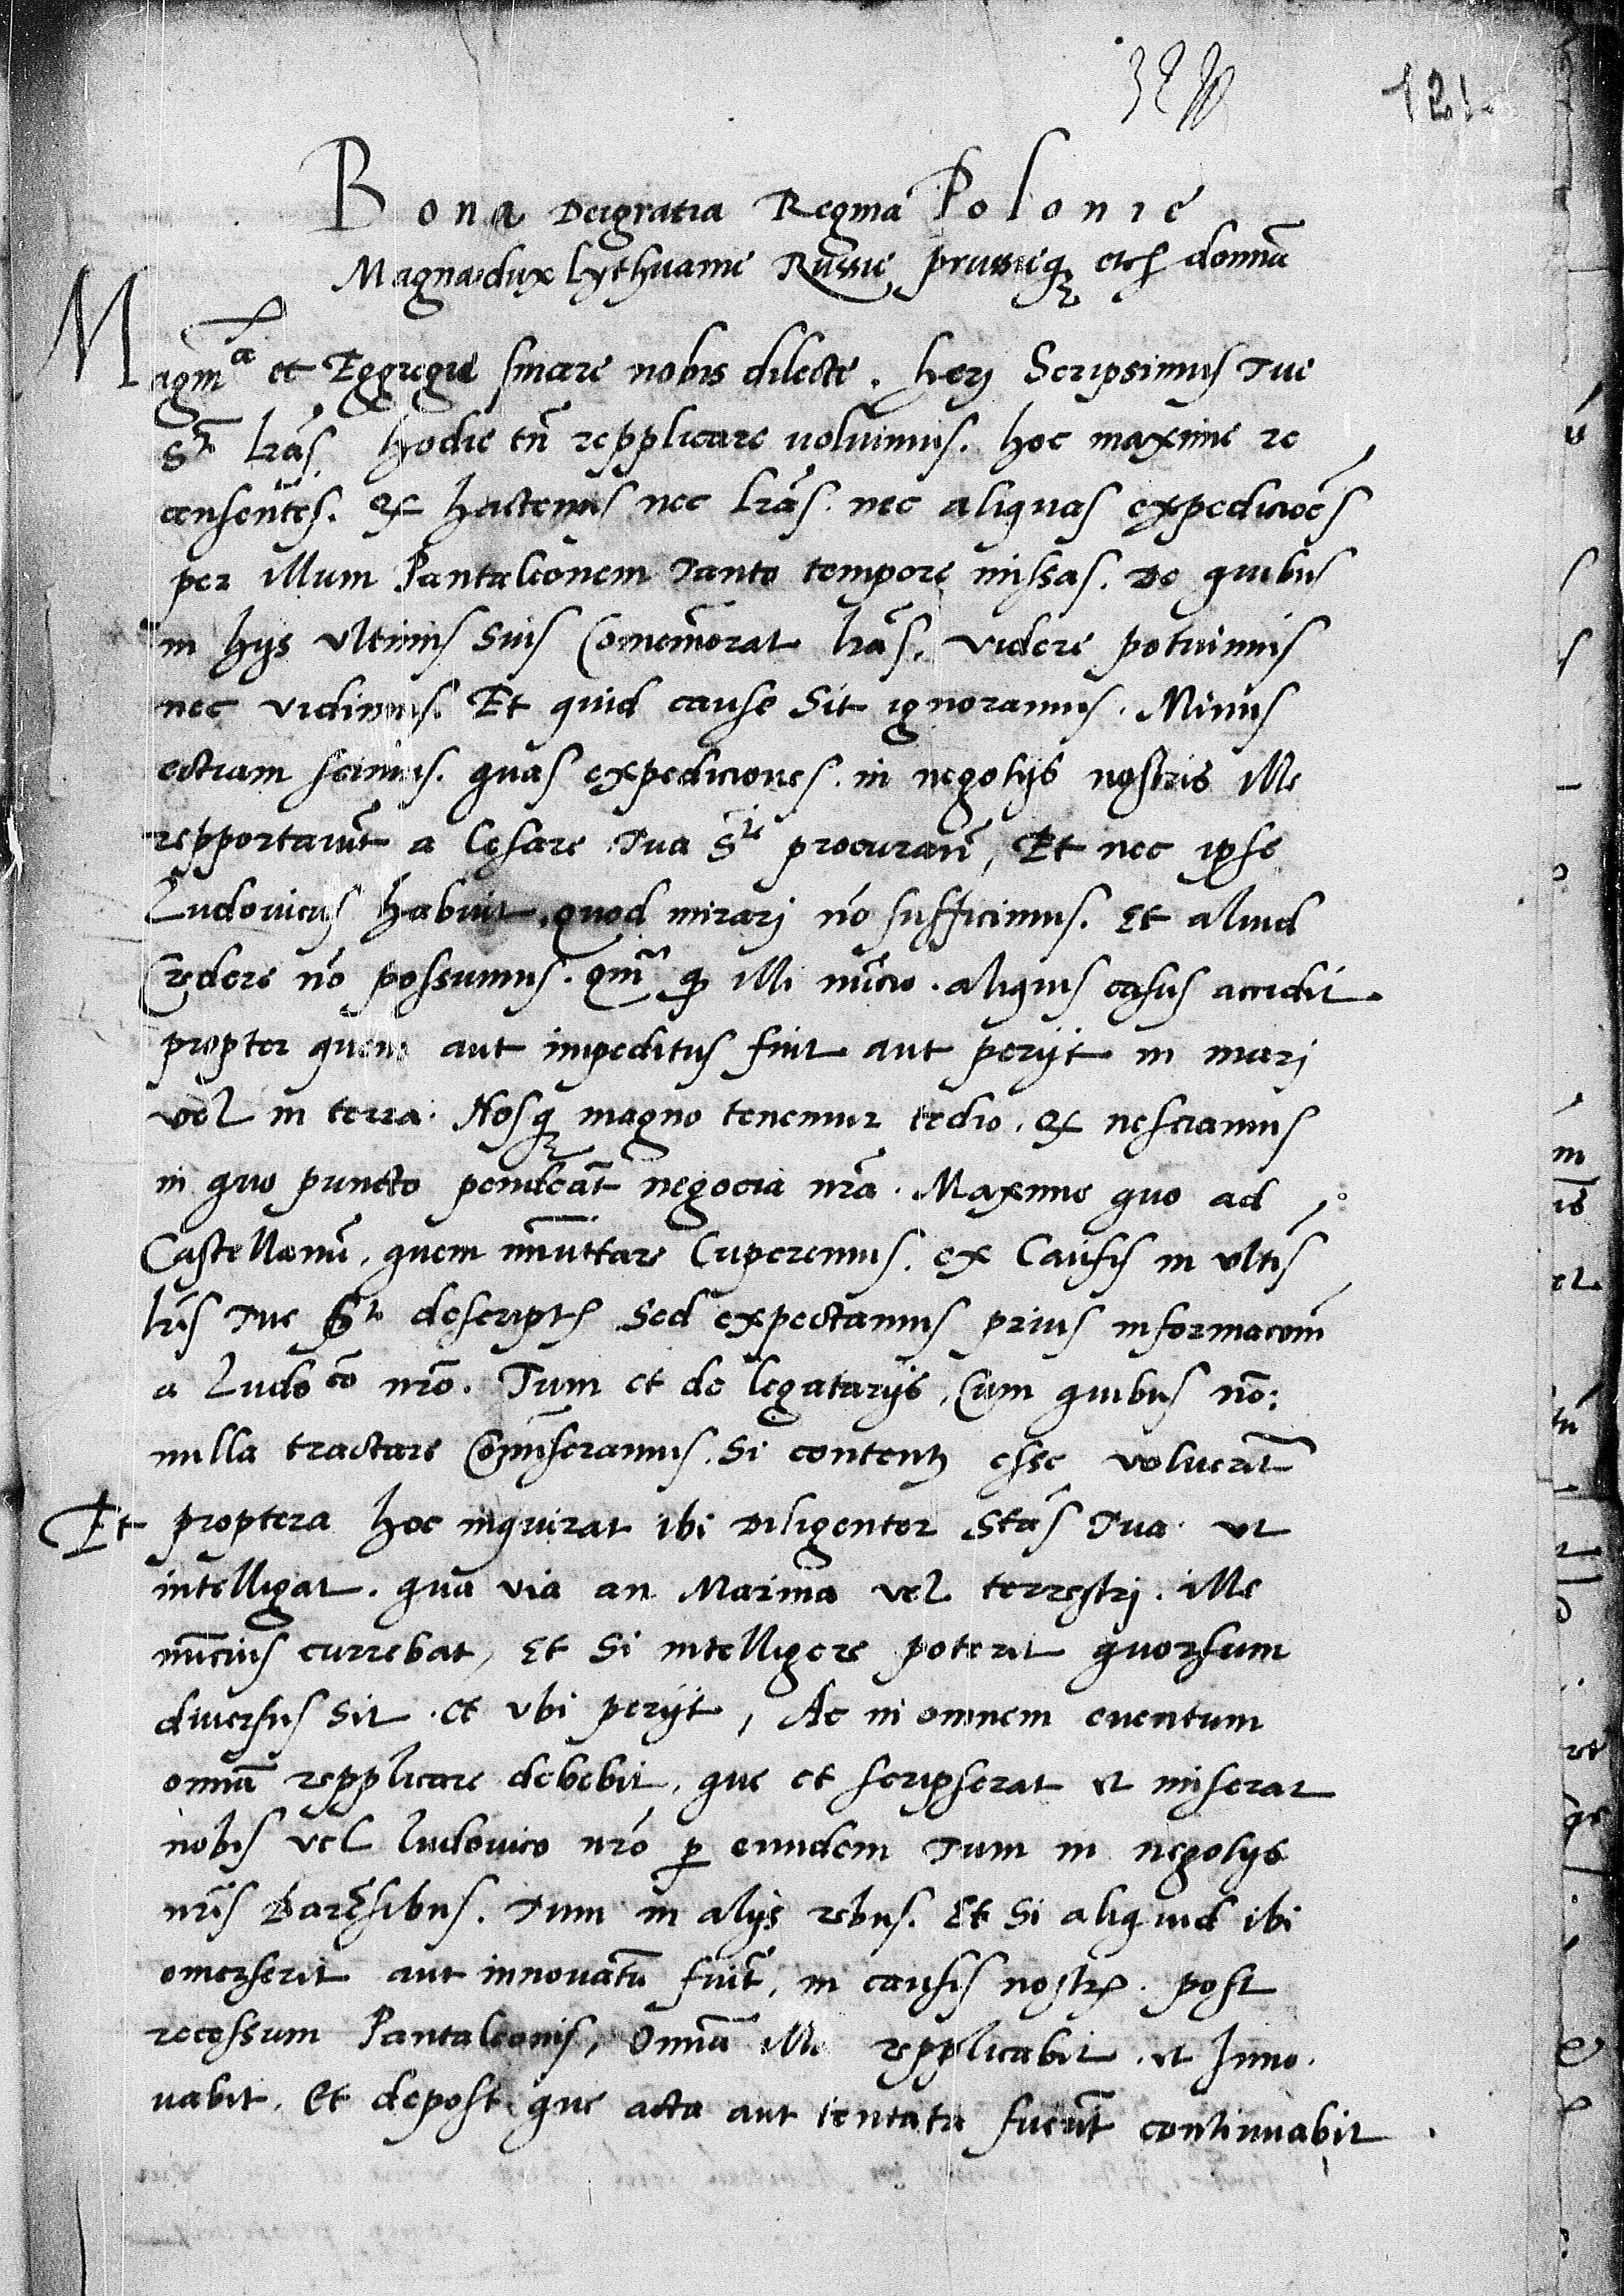 121
Bona Dei gratia Regina Polonie
Magna dux Lythuanie Russie prussieq etc domina
Magnice et Eggregie sincere nobis dilecte. Herj Scripsimus Tue
Stī lrās. Hodie tn̄ repplicare voluimus. hoc maxime re
censentes. q̨ hactenus nec lrās. nec aliquas expedicioēs
per illum Pantaleonem Tanto tempore missas. De quibus
in hys ultimis suis Comemorat lrās. videre potuimus
nec vidimus. Et quid cause sit ignoramus. Minus
ectiam scimus. quas expediciones. in negotijs nostris ille
repportarūt a Cesare Tua Ste procurān, Et nec ipse
Ludovicus habuit. quod mirarj nō sufficimus. Et aliud
Credere nō possumus. qm̄ q illi nūcio. aliquis casus accidit.
propter quem aut impeditus fuit aut perijt in marj
vel in terra. Nosq magno tenemur tedio. q̨ nesciamus
in quo puncto pendeāt negocia nrā. Maxime quo ad
Castellanū. quem im̄uttare Cuperemus. ex Causis in ultīs
lrīs Tue Stī descriptis Sed expectamus prius informacōm
a Ludōco nrō. Tum et de legatarijs. Cum quibus nō:
nulla tractare Com̄iseramus. Si contenti esse voluerīt
Et proptera hoc inquirat ibi Diligenter Stās Tua. ut
intelligat. qua via an Marina vel terrestrj. ille
nūcius currebat, Et Si intelligere poterit quorsum
diversus sit. et ubi perijt, Ac in omnem eventum
omnia repplicare debebit. que et scripserat et miserat
nobis vel Ludovico nrō p eumdem Tum in negotijs
nrīs Barēsibus. Tum in alijs rebus. Et Si aliquid ibi
emerserit aut innovatū fuit, in causis nostris. post
recessum Pantaleonis, Omnia ille repplicabit. et Inno.
vabit. Et depost que acta aut tentata fuerūt continuabit.